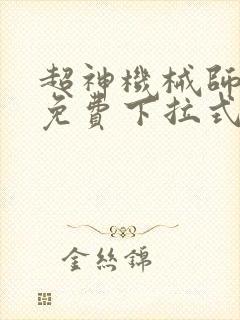 超神機械師
免費下拉式
金絲錦